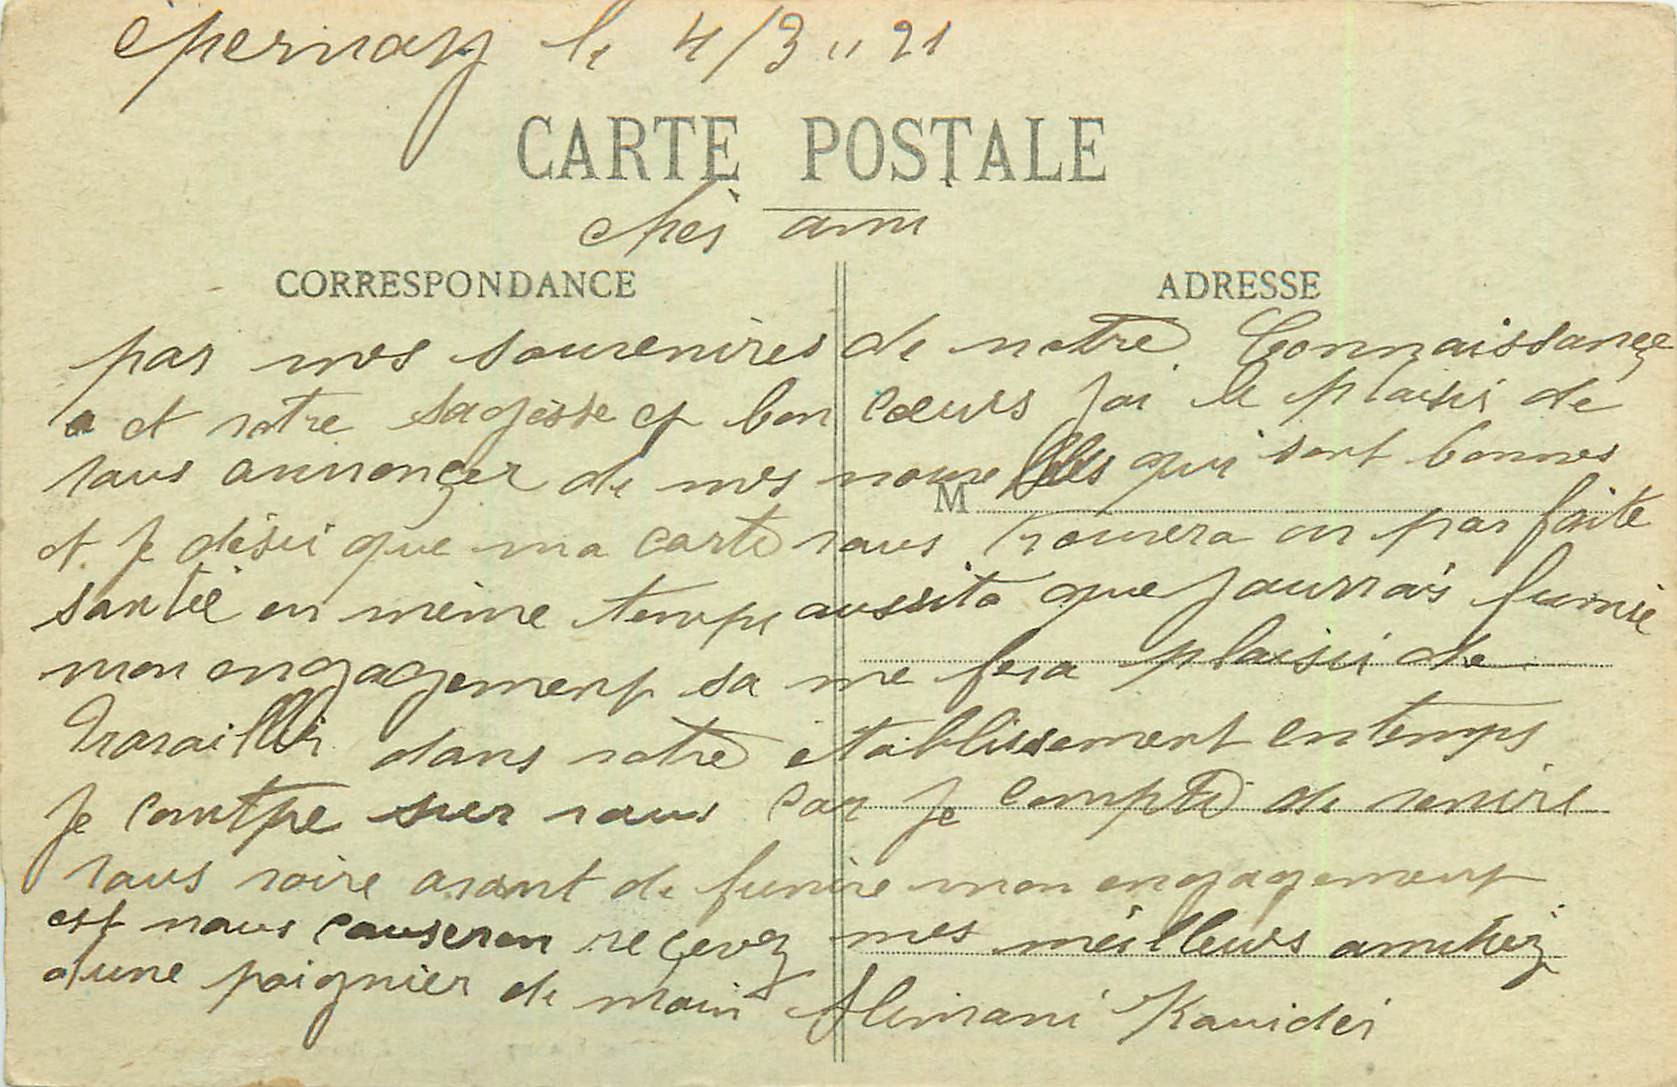 épernay le 4/3 " 21
CARTE POSTALE
chèr ami
CORRESPONDANCE ADRESSE
par mes souvenires de notre Connaissançe
et votre sagesse et bon cœurs jai le plaisir de
vous annonçer de mes nouvelles qui sont bonnes
M
et je désir que ma carte vous trouvera en par faite
santée en mème temps aussito que jaurrais funnie
mon engagement sa me fera plaisir de
travaillér dans votre établissement entemps
je contpe sur vous car je compte de venire
vous voire avant de funire mon engagement
est nous causeron reçevez mes meilleurs amitiéz
dune poignier de main Alimani